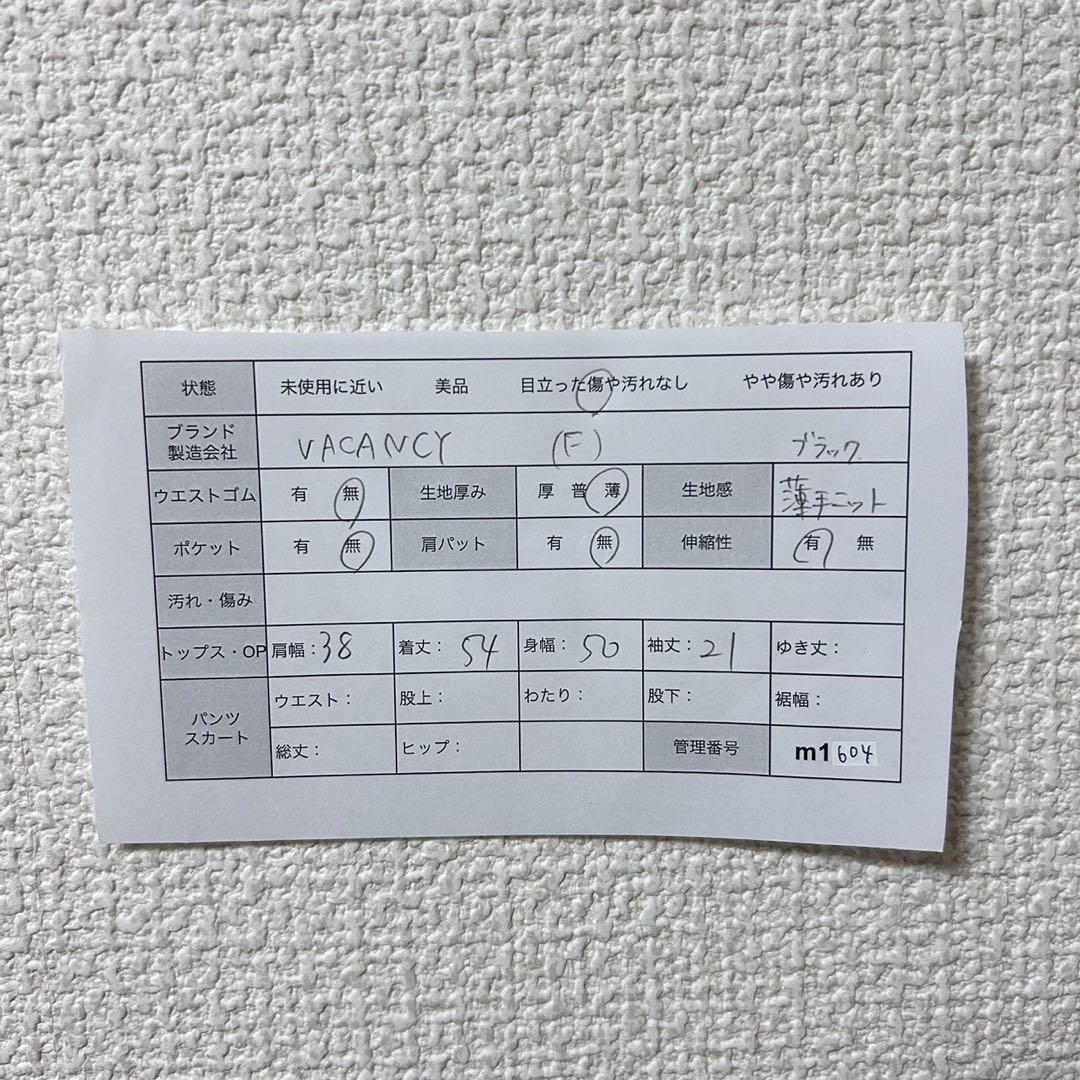 状態 未使用に近い 美品 目立った傷や汚れなし やや傷や汚れあり
ブランド
製造会社 VACANCY (F) ブラック
ウエストゴム 有 無 生地厚み 厚 普 薄 生地感 薄手ニット
ポケット 有 無 肩パット 有 無 伸縮性 有 無
汚れ・傷み
トップス・OP 肩幅：38 着丈：54 身幅：50 袖丈：21 ゆき丈：
パンツ
スカート ウエスト： 股上： わたり： 股下： 裾幅：
総丈： ヒップ： 管理番号 m1604